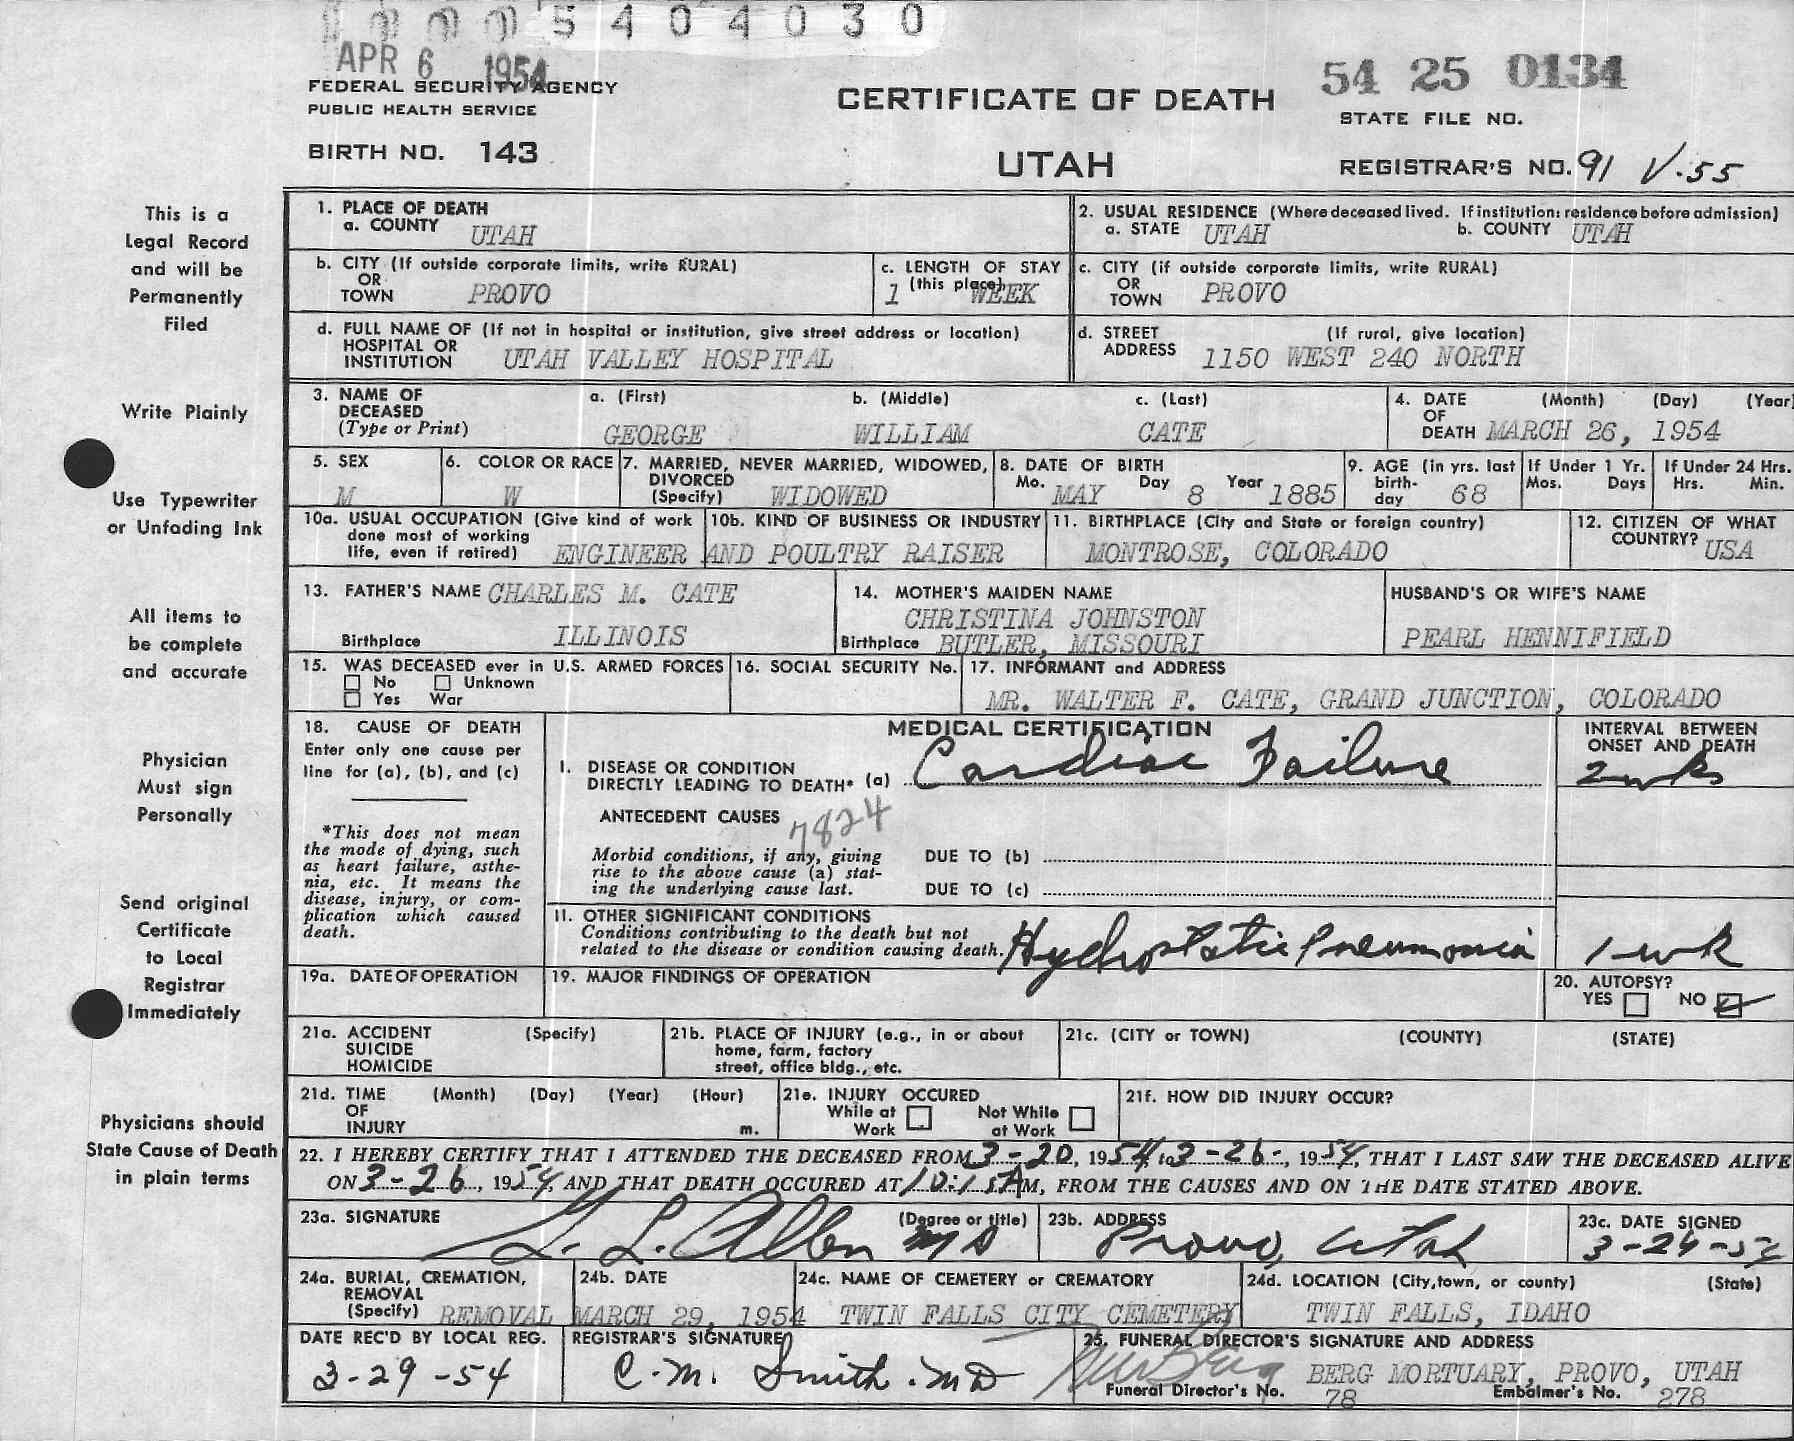 0005404030
APR 6 1954
FEDERAL SECURITY AGENCY
PUBLIC HEALTH SERVICE
BIRTH NO. 143
CERTIFICATE OF DEATH
UTAH
54 25 0134
STATE FILE NO.
REGISTRAR'S NO. 91 V.55
This is a
Legal Record
and will be
Permanently
Filed
Write Plainly
Use Typewriter
or Unfading Ink
All items to
be complete
and accurate
Physician
Must sign
Personally
Send original
Certificate
to Local
Registrar
Immediately
Physicians should
State Cause of Death
in plain terms
1. PLACE OF DEATH
a. COUNTY UTAH
2. USUAL RESIDENCE (Where deceased lived. If institution: residence before admission)
a. STATE UTAH b. COUNTY UTAH
b. CITY (If outside corporate limits, write RURAL)
OR
TOWN PROVO
c. LENGTH OF STAY
(this place)
1 WEEK
c. CITY (if outside corporate limits, write RURAL)
OR
TOWN PROVO
d. FULL NAME OF (If not in hospital or institution, give street address or location)
HOSPITAL OR
INSTITUTION UTAH VALLEY HOSPITAL
d. STREET (If rural, give location)
ADDRESS 1150 WEST 240 NORTH
3. NAME OF DECEASED
(Type or Print)
a. (First) b. (Middle) c. (Last)
GEORGE WILLIAM CATE
4. DATE (Month) (Day) (Year)
OF
DEATH MARCH 26, 1954
5. SEX
M
6. COLOR OR RACE
W
7. MARRIED, NEVER MARRIED, WIDOWED,
DIVORCED
(Specify) WIDOWED
8. DATE OF BIRTH
Mo. MAY Day 8 Year 1885
9. AGE (in yrs. last
birth-
day 68
If Under 1 Yr.
Mos. Days
If Under 24 Hrs.
Hrs. Min.
10a. USUAL OCCUPATION (Give kind of work
done most of working
life, even if retired)
10b. KIND OF BUSINESS OR INDUSTRY
ENGINEER AND POULTRY RAISER
11. BIRTHPLACE (City and State or foreign country)
MONTROSE, COLORADO
12. CITIZEN OF WHAT
COUNTRY? USA
13. FATHER'S NAME CHARLES M. CATE
Birthplace ILLINOIS
14. MOTHER'S MAIDEN NAME
CHRISTINA JOHNSTON
Birthplace BUTLER, MISSOURI
HUSBAND'S OR WIFE'S NAME
PEARL HENNIFIELD
15. WAS DECEASED ever in U.S. ARMED FORCES
No Unknown
Yes War
16. SOCIAL SECURITY No.
17. INFORMANT and ADDRESS
MR. WALTER F. CATE, GRAND JUNCTION, COLORADO
18. CAUSE OF DEATH
Enter only one cause per
line for (a), (b), and (c)
*This does not mean
the mode of dying, such
as heart failure, asthe-
nia, etc. It means the
disease, injury, or com-
plication which caused
death.
MEDICAL CERTIFICATION
I. DISEASE OR CONDITION
DIRECTLY LEADING TO DEATH* (a) Cardiac Failure
INTERVAL BETWEEN
ONSET AND DEATH
2 wks
ANTECEDENT CAUSES
7824
Morbid conditions, if any, giving
rise to the above cause (a) stat-
ing the underlying cause last.
DUE TO (b)
DUE TO (c)
II. OTHER SIGNIFICANT CONDITIONS
Conditions contributing to the death but not
related to the disease or condition causing death. Hydrostatic Pneumonia 1 wk
19a. DATE OF OPERATION
19. MAJOR FINDINGS OF OPERATION
20. AUTOPSY?
YES NO
21a. ACCIDENT (Specify)
SUICIDE
HOMICIDE
21b. PLACE OF INJURY (e.g., in or about
home, farm, factory
street, office bldg., etc.
21c. (CITY or TOWN) (COUNTY) (STATE)
21d. TIME (Month) (Day) (Year) (Hour)
OF
INJURY m.
21e. INJURY OCCURED
While at Work Not While at Work
21f. HOW DID INJURY OCCUR?
22. I HEREBY CERTIFY THAT I ATTENDED THE DECEASED FROM 3-20, 1954, to 3-26-, 1954, THAT I LAST SAW THE DECEASED ALIVE
ON 3-26, 1954, AND THAT DEATH OCCURED AT 10:15 AM, FROM THE CAUSES AND ON THE DATE STATED ABOVE.
23a. SIGNATURE (Degree or title)
L. L. Allen MD
23b. ADDRESS
Provo, Utah
23c. DATE SIGNED
3-29-54
24a. BURIAL, CREMATION,
REMOVAL
(Specify) REMOVAL
24b. DATE
MARCH 29, 1954
24c. NAME OF CEMETERY or CREMATORY
TWIN FALLS CITY CEMETERY
24d. LOCATION (City, town, or county) (State)
TWIN FALLS, IDAHO
DATE REC'D BY LOCAL REG.
3-29-54
REGISTRAR'S SIGNATURE
C. M. Smith. MD
25. FUNERAL DIRECTOR'S SIGNATURE AND ADDRESS
BERG MORTUARY, PROVO, UTAH
Funeral Director's No. 78 Embalmer's No. 278